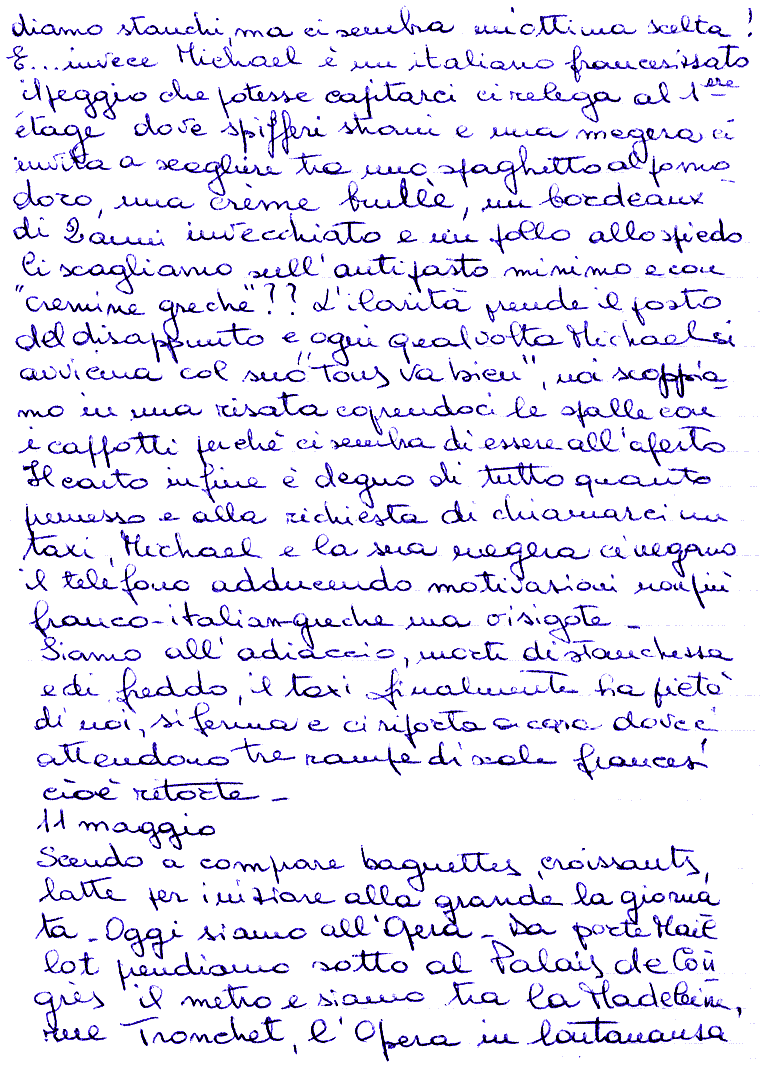 diamo stanchi, ma ci sembra un'ottima scelta!
E... invece Michael è un italiano francesizzato
il peggio che potesse capitarci ci relega al 1ère
étage dove spifferi strani e una megera ci
invita a scegliere tra uno spaghetto al pomo
doro, una crème brullè, un bordeaux
di 2 anni invecchiato e un pollo allo spiedo
Ci scagliamo sull'antipasto minimo e con
"cremine greche"?? L'ilarità prende il posto
del disappunto e ogni qualvolta Michael si
avvicina col suo "Tous va bien", noi scoppia-
mo in una risata coprendoci le spalle con
i cappotti perchè ci sembra di essere all'aperto
Il conto infine è degno di tutto quanto
premesso e alla richiesta di chiamarci un
taxi, Michael e la sua megera ci negano
il telefono adducendo motivazioni non più
franco-italian-greche ma visigote -
Siamo all'adiaccio, morti di stanchezza
e di freddo, il taxi finalmente ha pietà
di noi, si ferma e ci riporta a casa dove ci
attendono tre rampe di scale francesi
cioè ritorte -
11 maggio
Scendo a comprare baguettes, croissants,
latte per iniziare alla grande la giorna
ta - Oggi siamo all'Opera - Da porte Mail
lot prendiamo sotto al Palais de Con
grès il metro e siamo tra la Madeleine,
rue Tronchet, l'Opera in lontananza